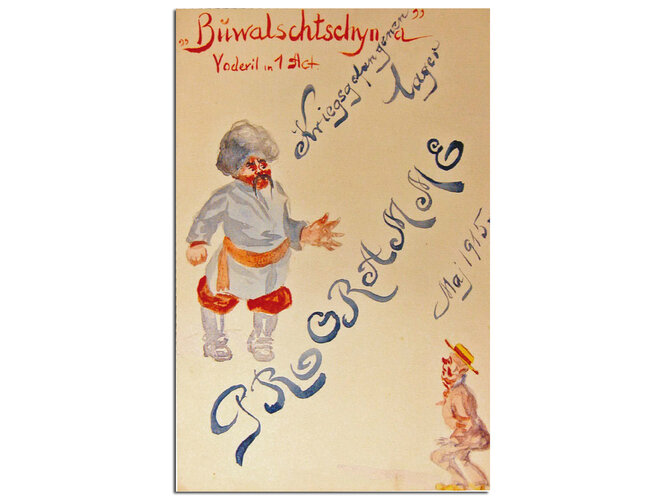 „Büwalschtschyna”
Voderil in 1 Act
Kriegsgefangenen
Lager
PROGRAMME
Maj 1915.